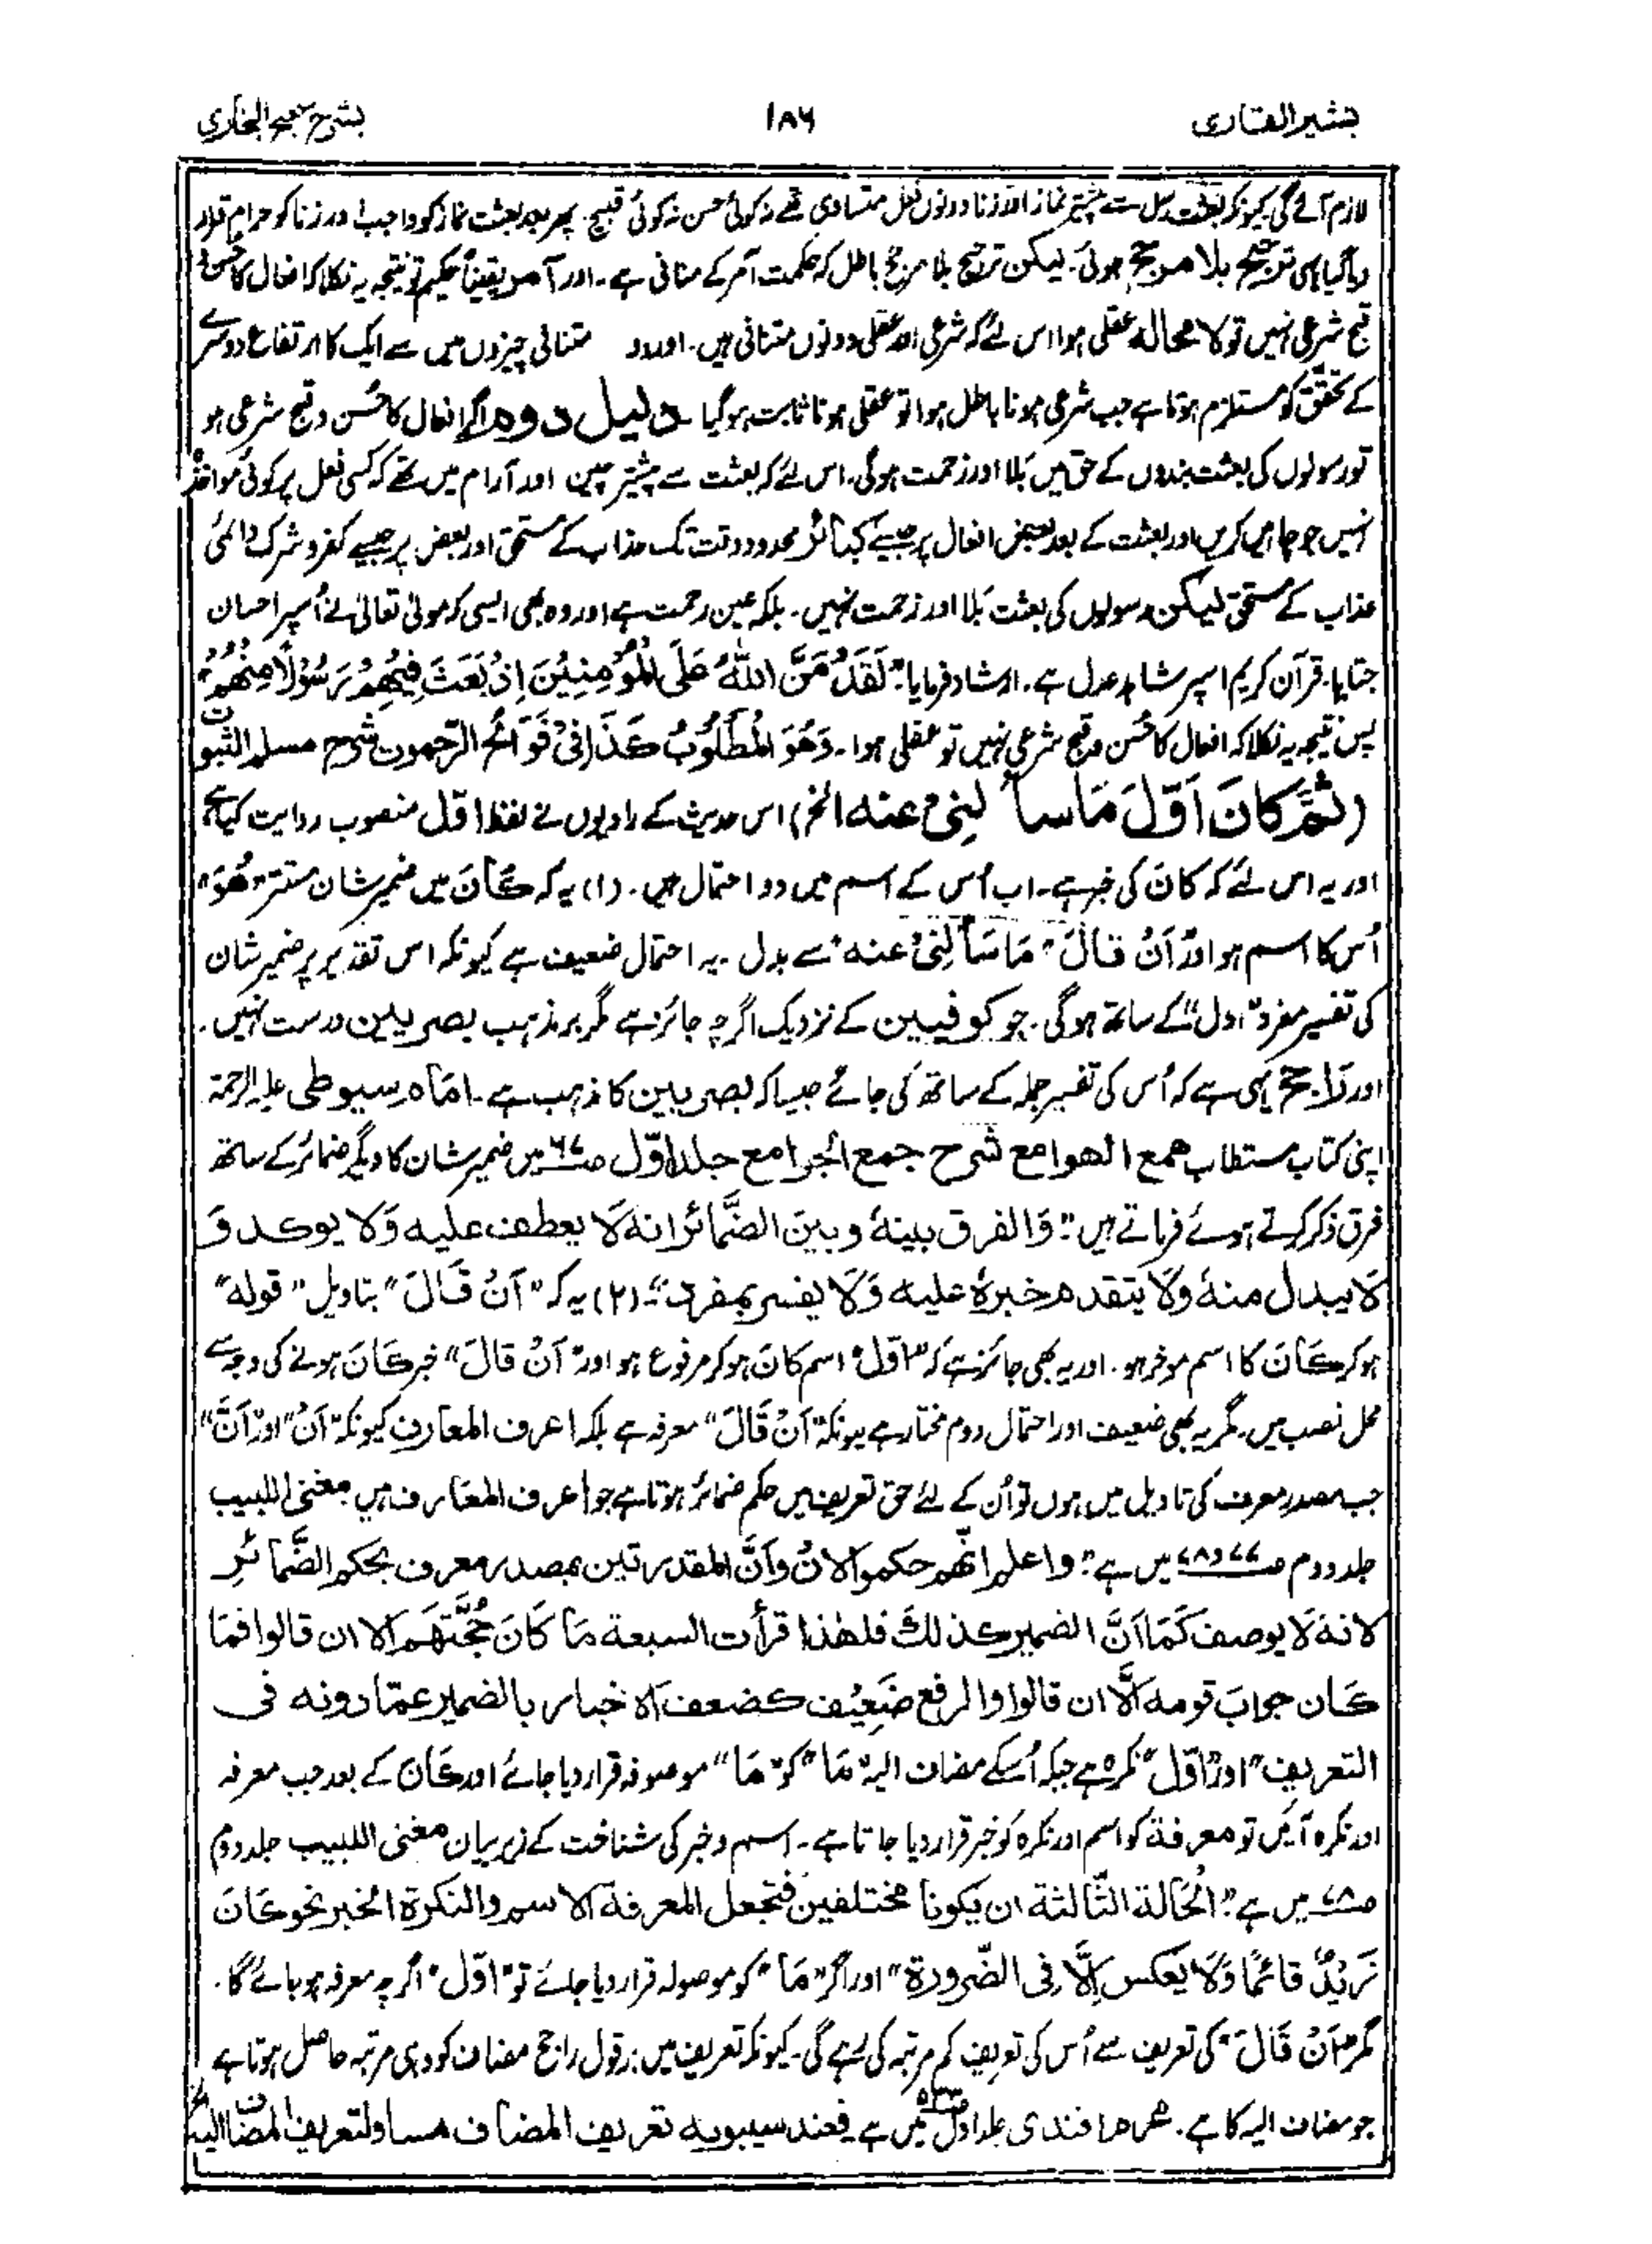 بشیر القاری ۱۸۶ بشرح صحیح البخاری
لازم آئے گی کیونکہ بعثت رسل سے پیشتر نماز اور زنا دونوں فعل متساوی تھے نہ کوئی حسن نہ کوئی قبیح. پھر بعد بعثت نماز کو واجب اور زنا کو حرام قرار
دیا گیا یہی ترجیح بلا مرجح ہوئی۔ لیکن ترجیح بلا مرجح باطل کہ حکمت آمر کے منافی ہے۔ اور آمر یقیناً حکیم تو نتیجہ یہ نکلا کہ افعال کا حسن و
قبح شرعی نہیں تو لا محالہ عقلی ہوا اس لئے کہ شرعی اور عقلی دونوں متنافی ہیں۔ اور دو متنافی چیزوں میں سے ایک کا ارتفاع دوسرے
کے تحقق کو مستلزم ہوتا ہے جب شرعی ہونا باطل ہوا تو عقلی ہونا ثابت ہوگیا۔ دلیل دوم اگر افعال کا حُسن و قبح شرعی ہو
تو رسولوں کی بعثت بندوں کے حق میں بَلا اور زحمت ہوگی۔ اس لئے کہ بعثت سے پیشتر چین اور آرام میں تھے کہ کسی فعل پر کوئی مواخذہ
نہیں جو چاہیں کریں اور بعثت کے بعد بعض افعال پر جیسے کبائر محدود وقت تک عذاب کے مستحق اور بعض پر جیسے کفر و شرک دائمی
عذاب کے مستحق لیکن رسولوں کی بعثت بَلا اور زحمت نہیں۔ بلکہ عین رحمت ہے اور وہ بھی ایسی کہ مولیٰ تعالیٰ نے اُسپر احسان
جتایا۔ قرآن کریم اسپر شاہد عدل ہے۔ ارشاد فرمایا: "لَقَدْ مَنَّ اللّٰهُ عَلَى الْمُؤْمِنِيْنَ اِذْ بَعَثَ فِيْهِمْ رَسُوْلًا مِنْهُمْ"
پس نتیجہ یہ نکلا کہ افعال کا حُسن و قبح شرعی نہیں تو عقلی ہوا۔ وَهُوَ الْمَطْلُوْبُ كَذَا فِیْ فَوَاتِحِ الرَّحموت شرح مسلم الثبوت
(ثُمَّ كَانَ اَوَّلَ مَا سَأَلَنِیْ عنه الخ) اس حدیث کے راویوں نے لفظ اوّل منصوب روایت کیا ہے
اور یہ اس لئے کہ کَانَ کی خبر ہے۔ اب اُس کے اسم میں دو احتمال ہیں۔ (۱) یہ کہ کَانَ میں ضمیر شان مستتر "هُوَ"
اُس کا اسم ہو اور "اَنْ قَالَ" "مَا سَأَلَنِیْ عنه" سے بدل۔ یہ احتمال ضعیف ہے کیونکہ اس تقدیر پر ضمیر شان
کی تفسیر مفرد "اول" کے ساتھ ہوگی۔ جو کوفیین کے نزدیک اگرچہ جائز ہے مگر بر مذہب بصریین درست نہیں۔
اور رَاجح یہی ہے کہ اُس کی تفسیر جملہ کے ساتھ کی جائے جیسا کہ بصریین کا مذہب ہے۔ امام سیوطی علیہ الرحمۃ
اپنی کتاب مستطاب همع الهوامع شرح جمع الجوامع جلد اوّل ص۶۷ میں ضمیر شان کا دیگر ضمائر کے ساتھ
فرق ذکر کرتے ہوئے فرماتے ہیں: "وَالفرق بینهٗ وبین الضّمائر انه لَا یعطف علیه وَلَا یوکد وَ
لَا یبدل منهٗ وَلَا یتقدم خبرهٗ علیه وَلَا یفسر بمفرد"۔ (۲) یہ کہ "اَنْ قَالَ" بتاویل "قوله"
ہو کر کَانَ کا اسم موخر ہو۔ اور یہ بھی جائز ہے کہ "اوّل" اسم کان ہو کر مرفوع ہو اور "اَنْ قَالَ" خبر کَانَ ہونے کی وجہ سے
محل نصب میں۔ مگر یہ بھی ضعیف اور احتمال دوم مختار ہے کیونکہ "اَنْ قَالَ" معرفہ ہے بلکہ اعرف المعارف کیونکہ "اَنْ" اور "اَنَّ"
جب مصدر معرف کی تاویل میں ہوں تو اُن کے لئے حق تعریف میں حکم ضمائر ہوتا ہے جو اعرف المعارف ہیں مغنی اللبیب
جلد دوم میں ہے: "واعلم انّهم حکموا لاَنْ وَاَنَّ المقدرتین بمصدر معرف بحکم الضّمائرِ
لانه لَا یوصف کَمَا اَنَّ الضمیر کذلك فلهٰذا قرأت السبعة مَا كَانَ حُجَّتَهُم الا ان قالوا فمَا
كَان جوابَ قومه اِلَّا ان قالوا والرفع ضَعِیْف کضعف الاخبار بالضمیر عمّا دونه فی
التعریف" اور "اوّل" نکرہ ہے جبکہ اُسکے مضاف الیہ "مَا" کو "مَا" موصوفہ قرار دیا جائے اور کَانَ کے بعد جب معرفہ
اور نکرہ آئیں تو معرفۃ کو اسم اور نکرہ کو خبر قرار دیا جاتا ہے۔ اسم و خبر کی شناخت کے زیر بیان مغنی اللبیب جلد دوم
میں ہے: "الْحَالة الثّالثة ان یکونا مختلفین فتجعل المعرفة الاسم والنکرة الخبر نحو کَانَ
زَیْدٌ قائمًا وَلَا یعکس اِلَّا فی الضّرورة" اور اگر "مَا" کو موصولہ قرار دیا جائے تو "اوّل" اگرچہ معرفہ ہو جائے گا۔
مگر "اَنْ قَالَ" کی تعریف سے اُس کی تعریف کم مرتبہ کی رہے گی۔ کیونکہ تعریف میں بر قول راجح مضاف کو وہی مرتبہ حاصل ہوتا ہے
جو مضاف الیہ کا ہے۔ محرم افندی جلد اول میں ہے فعند سیبویه تعریف المضاف مساو لتعریف المضاف الیه